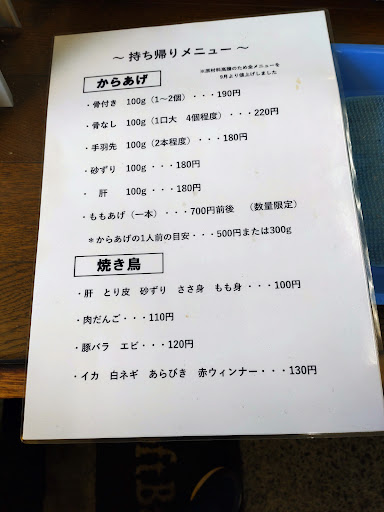 ～ 持ち帰りメニュー ～
からあげ
※原材料高騰のため全メニューを
9月より値上げしました
・骨付き 100g（1～2個）・・・190円
・骨なし 100g（1口大 4個程度）・・・220円
・手羽先 100g（2本程度）・・・180円
・砂ずり 100g・・・180円
・ 肝 100g・・・180円
・ももあげ（一本）・・・700円前後 （数量限定）
＊からあげの1人前の目安・・・500円または300g
焼き鳥
・肝 とり皮 砂ずり ささ身 もも身・・・100円
・肉だんご・・・110円
・豚バラ エビ・・・120円
・イカ 白ネギ あらびき 赤ウィンナー・・・130円